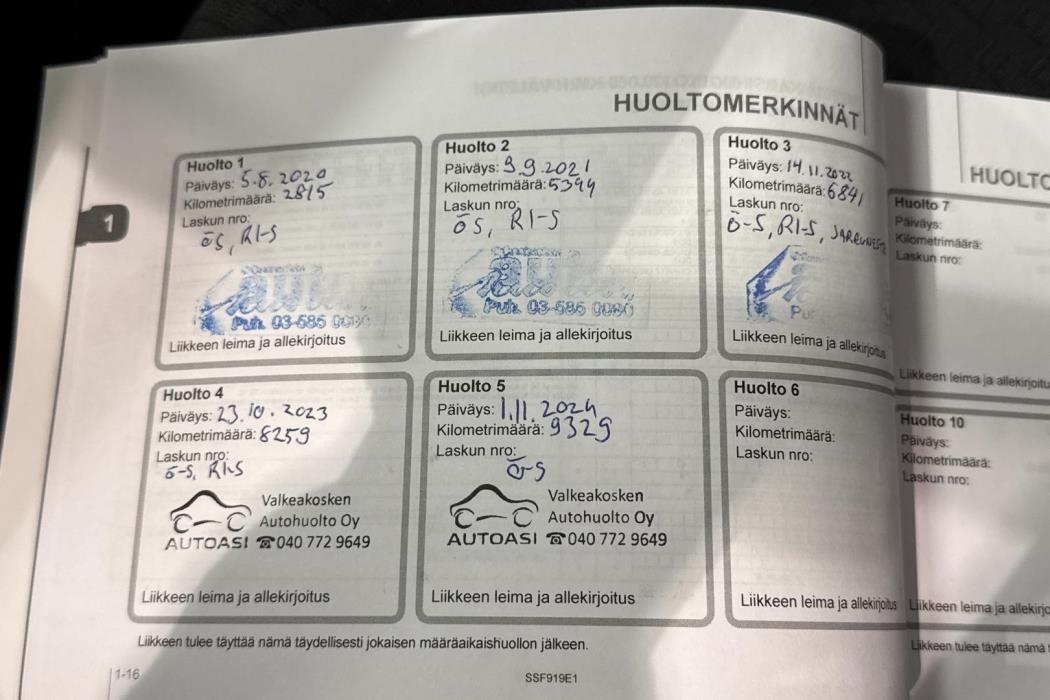 HUOLTOMERKINNÄT
Huolto 1
Päiväys: 5.8.2020
Kilometrimäärä: 2815
Laskun nro:
ÖS, RI-S
Puh. 03-585
Liikkeen leima ja allekirjoitus
Huolto 2
Päiväys: 9.9.2021
Kilometrimäärä: 5394
Laskun nro:
ÖS, RI-S
Puh. 03-585
Liikkeen leima ja allekirjoitus
Huolto 3
Päiväys: 14.11.2022
Kilometrimäärä: 6841
Laskun nro:
Ö-S, RI-S,
Liikkeen leima ja allekirjoitus
Huolto 4
Päiväys: 23.10.2023
Kilometrimäärä: 8259
Laskun nro:
Ö-S, RI-S
Valkeakosken
Autohuolto Oy
AUTOASI ☎040 772 9649
Liikkeen leima ja allekirjoitus
Huolto 5
Päiväys: 1.11.2024
Kilometrimäärä: 9329
Laskun nro:
Ö-S
Valkeakosken
Autohuolto Oy
AUTOASI ☎040 772 9649
Liikkeen leima ja allekirjoitus
Huolto 6
Päiväys:
Kilometrimäärä:
Laskun nro:
Liikkeen leima ja allekirjoitus
Liikkeen tulee täyttää nämä täydellisesti jokaisen määräaikaishuollon jälkeen.
1-16
SSF919E1
1
HUOLTO
Huolto 7
Päiväys:
Kilometrimäärä:
Laskun nro:
Liikkeen leima ja allekirjoitu
Huolto 10
Päiväys:
Kilometrimäärä:
Laskun nro:
Liikkeen leima ja allekirjo
Liikkeen tulee täyttää nämä